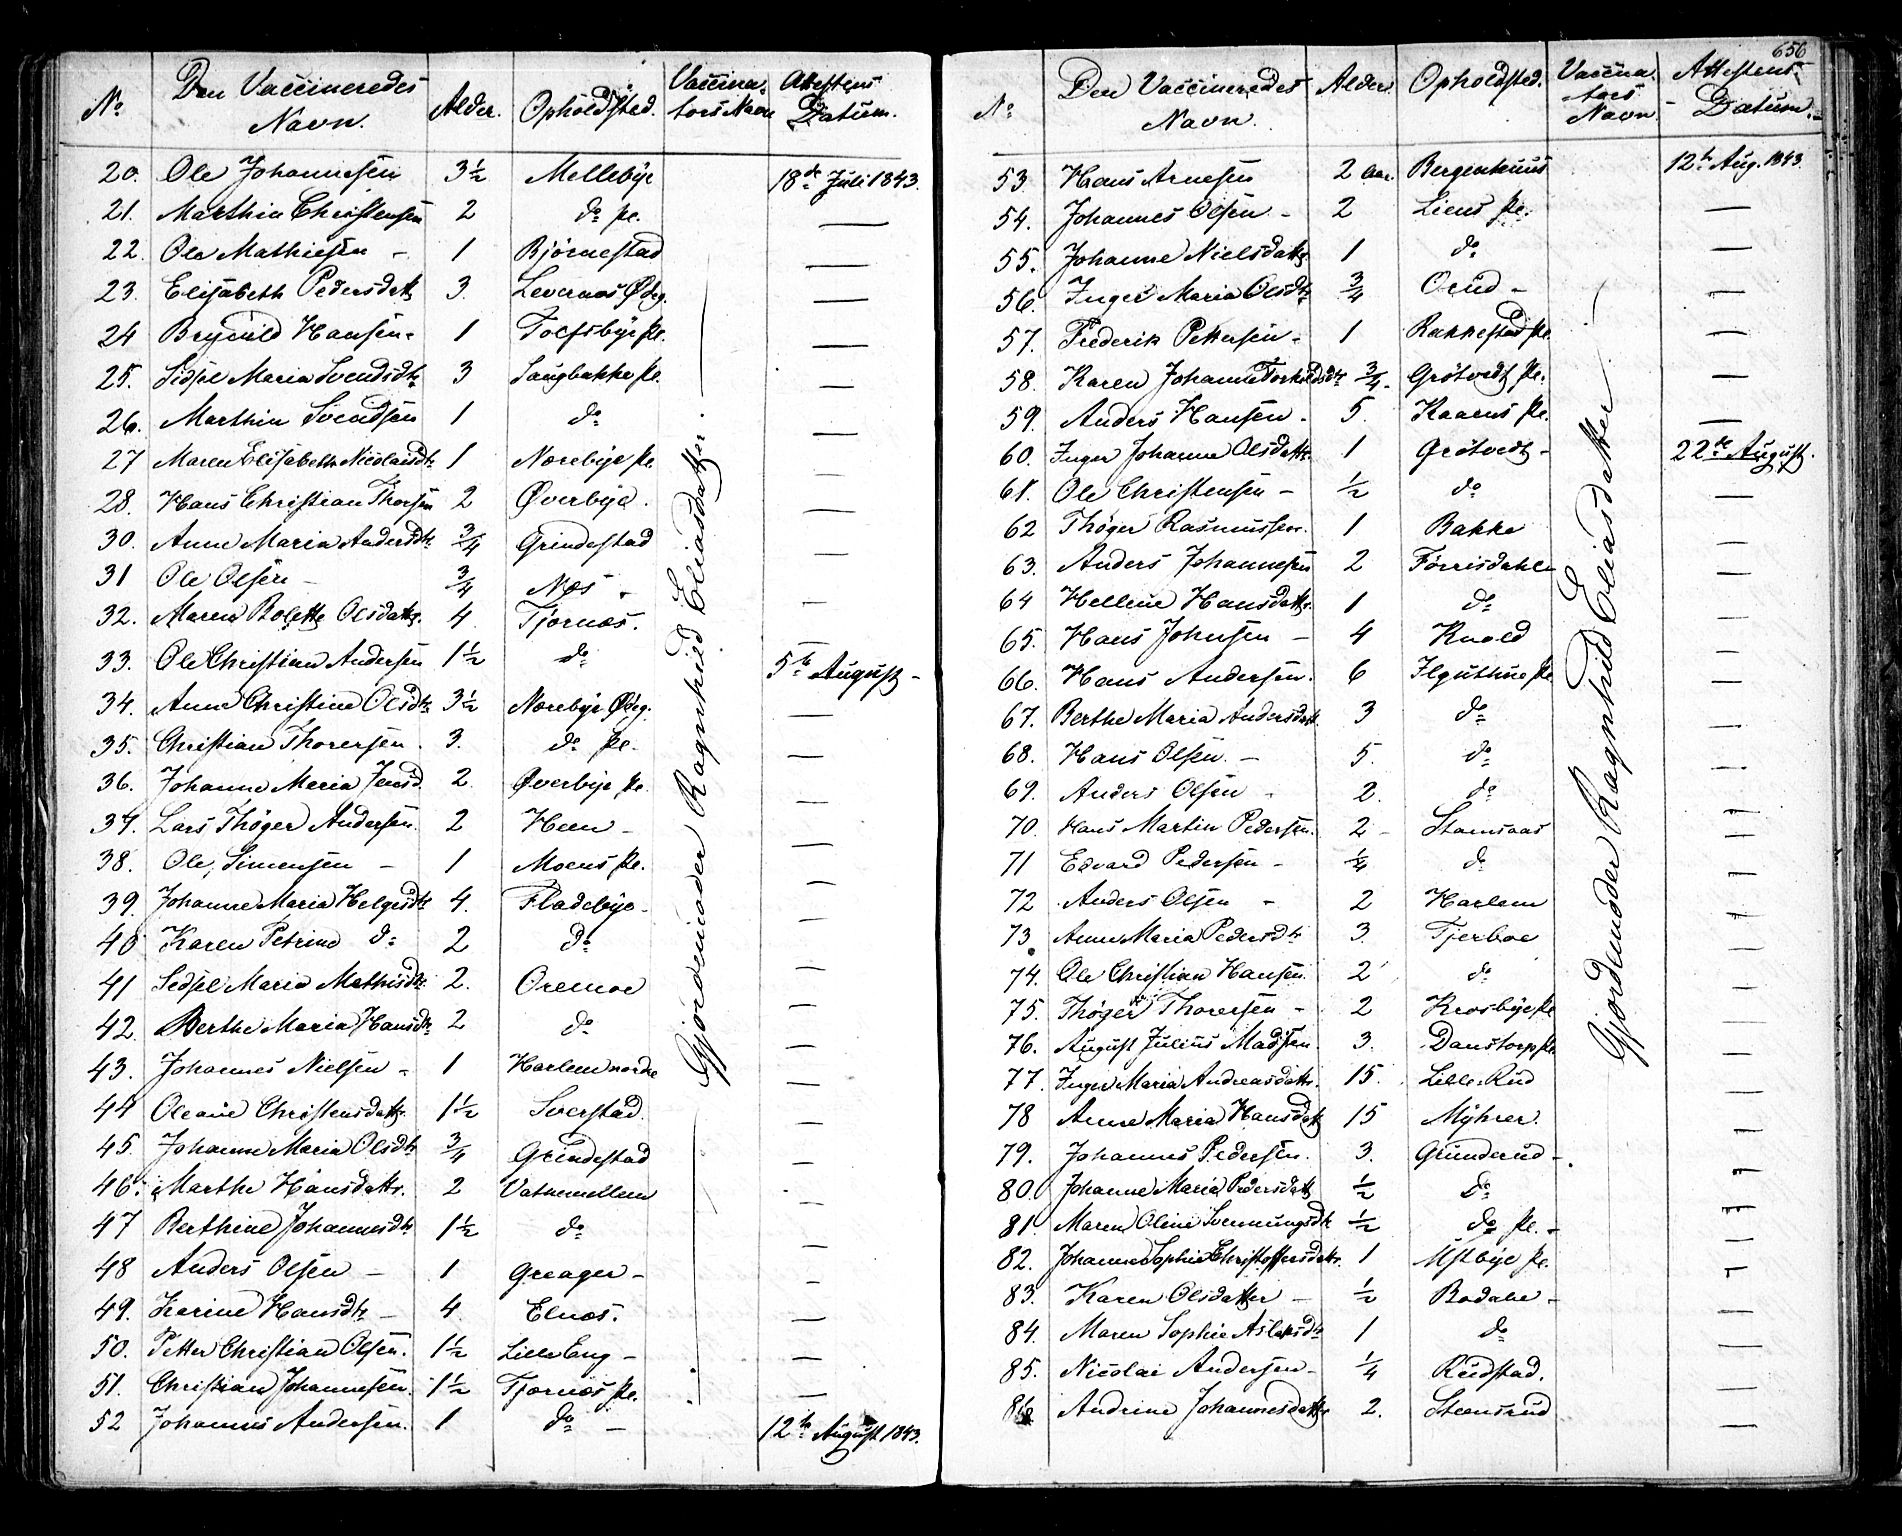 No
Den Vaccineredes Navn.
Alder.
Opholdsted.
Vaccinators Navn
Attestens Datum.
20. Ole Johannesen 3½ Mellebÿe 18de Juli 1843.
21. Marthin Christensen 2 do pl. —
22. Ole Mathiesen - 1 Bjørnestad —
23. Elisabeth Pedersdatt 3. Levernæs Ødeg. —
24 Brynild Hansen - 1 Toefsbÿe pl. —
25. Sidsel Maria Svendsdtr 3 Saugbakke pl. —
26. Marthin Svendsen 1 do —
27 Maren Elisabeth Nicolaisdtr 1 Nærebÿe pl. —
28. Hans Christian Thorsen 2 Øverbÿe. —
30. Anne Maria Andersdtr ¾ Grindestad —
31 Ole Olsen - ¾ Næs - —
32. Maren Bolette Olsdattr. 4 Tjærnæs. —
33. Ole Christian Andersen 1½ do 5te August -
34. Anne Christine Olsdtr 3½ Nærebÿe Ødeg. —
35. Christian Thorersen. 3. do pl. —
36. Johanne Maria Jensd 2 Øverbÿe pl. —
37. Lars Thøger Andersen. 2 Heen - —
38. Ole Simensen - 1 Moens pl. —
39. Johanne Maria Helgesdtr 4. Fladebÿe - —
40 Karen Petrine do 2 do —
41 Sedsel Maria Mathisdtr 2. Oremoe —
42. Berthe Maria Hansdtr 2 do —
43. Johannes Nielsen - 1 Harlem nordre —
44 Oleane Christensdattr 1½ Sverstad. —
45. Johanne Maria Olsdtr ¾ Grindestad —
46. Marthe Hansdattr. 2 Vatnemellem —
47 Berthine Johannesdtr 1½ do —
48 Anders Olsen - 1 Greager - —
49. Karine Hansdtr - 4. Elnæs. —
50. Petter Christian Olsen. 1½ Lille Eng - —
51. Christian Johannesen. 1½ Tjærnæs pl. —
52 Johannes Andersen. 1 do - 12te August 1843.
Gjordemoder Ragnhild Eliasdatter.
656
No
Den Vaccineredes Navn.
Alder.
Opholdsted.
Vaccinators Navn
Attestens Datum.
53. Hans Arnesen 2 Aar. Bergenhuus 12te Aug. 1843.
54. Johannes Olsen - 2 Liens pl. —
55. Johanne Nielsdattr 1 do —
56. Inger Maria Olsdtr ¾ Ørud - —
57. Frederik Pettersen - 1 Rakkestad pl. —
58. Karen Johanne Torkildsdtr ¾. Grøtvedt pl. —
59. Anders Hansen. 5. Kaarns pl. —
60. Inger Johanne Olsdattr. 1 Grøtvedt - 22de August.
61. Ole Christensen - ½ do —
62 Thøger Rasmussen. 1 Bakke —
63. Anders Johannesen 2 Førrisdahl —
64 Hellene Hansdattr. 1 do —
65. Hans Johnsen - 4 Knold —
66. Hans Andersen. 6 pl —
67. Berthe Maria Andersdatt. 3 do —
68. Hans Olsen. - 5. do —
69. Anders Olsen - 2. do —
70. Hans Martin Pedersen. 2 - Stamsaas —
71 Edvard Pedersen - ¼ do —
72 Anders Olsen - 2 Harlem —
73 Anne Maria Pedersdtr 3. Tjerboe —
74. Ole Christian Hansen. 2 do —
75. Thøger Thorersen - 2 Krosbÿe pl —
76. August Julius Madsen. 3. Danstorp pl. —
77. Inger Maria Andreasdattr. 15. Lille Rud —
78 Anne Maria Hansdatt 15 Mÿhrer. —
79. Johannes Pedersen. 3. Grünerud - —
80. Johanne Maria Pedersdatt ½ do —
81. Maren Oline Svenningsdtr ½ do pl. - —
82. Johanne Sophie Christoffersdattr. 1 Üstbÿe pl. —
83. Karen Olsdatter - ½ Bodahl - —
84. Maren Sophie Aslaksdtr 1 do —
85. Nicolai Andersen - ¼ Rüdstad. —
86 Andrine Johannesdattr 2. Steensrud —
Gjordemoder Ragnhild Eliasdatter